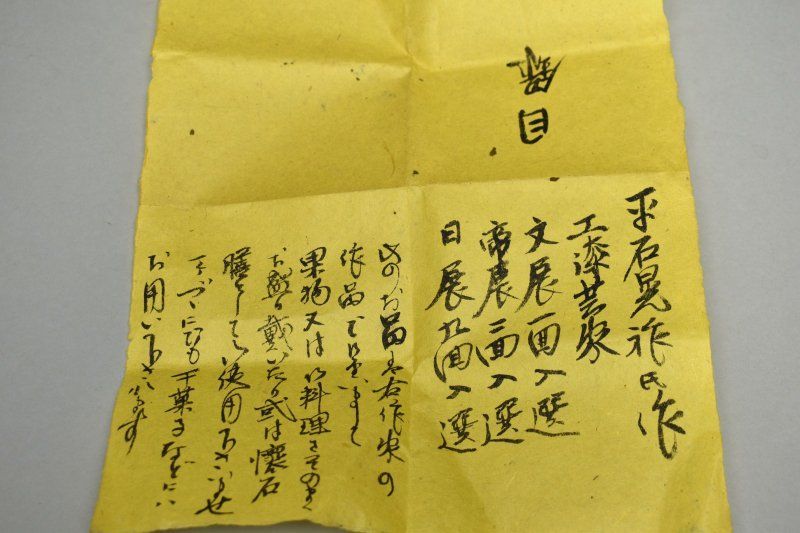 目録
平石晃祥氏作
工漆芸家
文展一回入選
帝展二回入選
日展九回入選
此のお品は右作家の
作品で御座いまして
果物又は御料理をそのまゝ
お盛り戴いたり或は懐石
膳としても御使用下さいませ
にも干菓子などに
お用い下さいませ